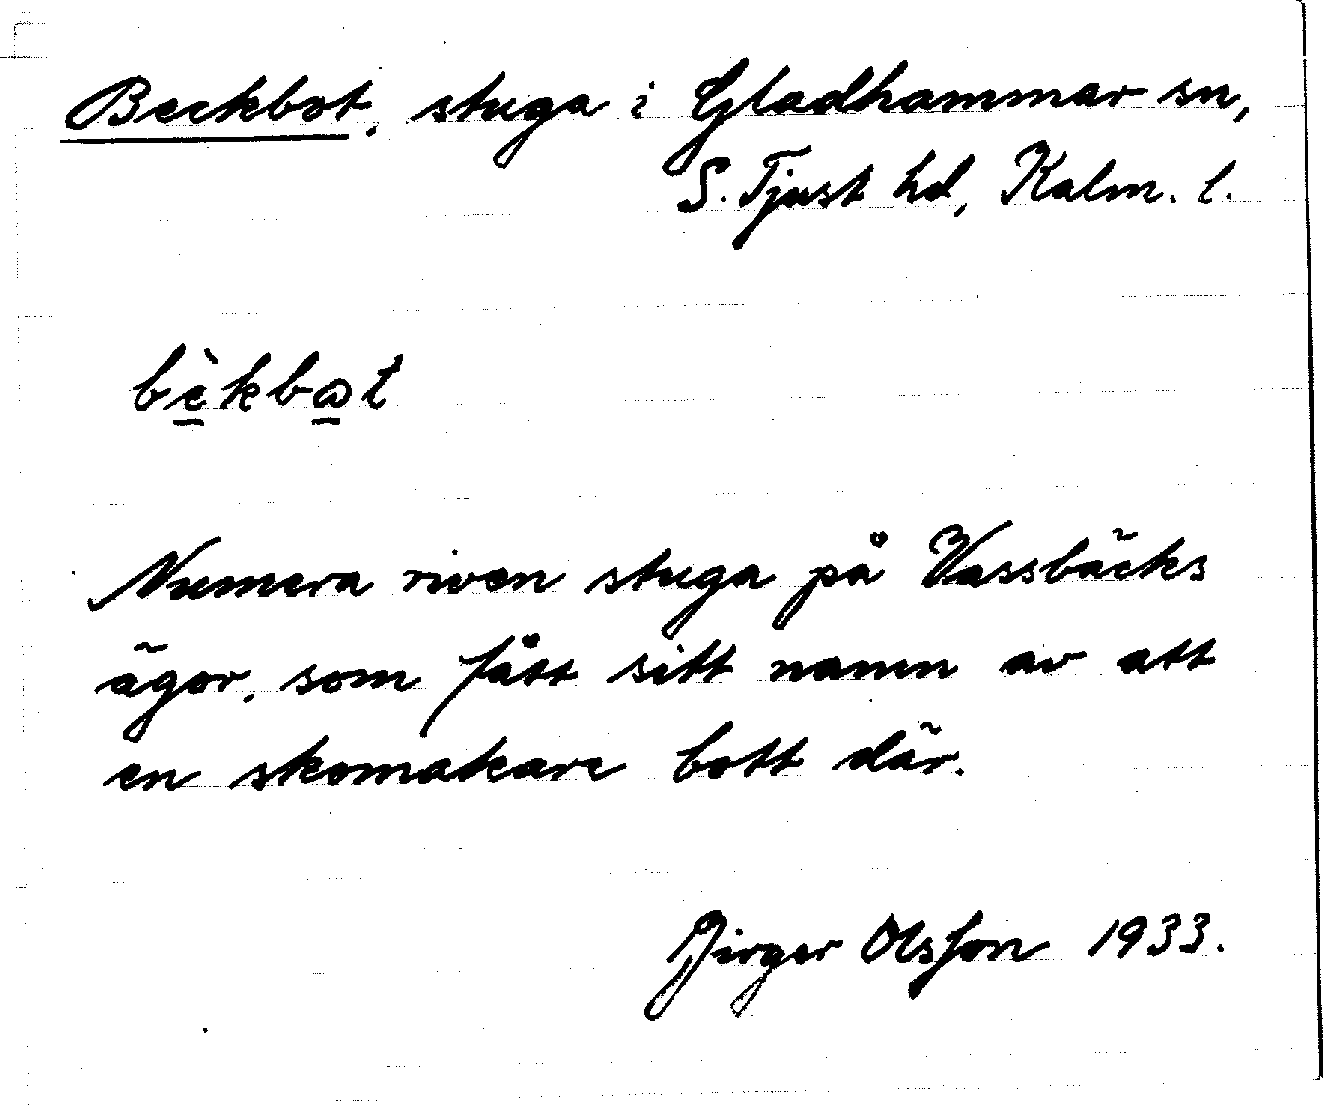 Beckbot, stuga i Gladhammar sn,
S. Tjust hd, Kalm. l.
bèkbɷt
Numera riven stuga på Vassbäcks
ägor, som fått sitt namn av att
en skomakare bott där.
Jirger Olsson 1933.